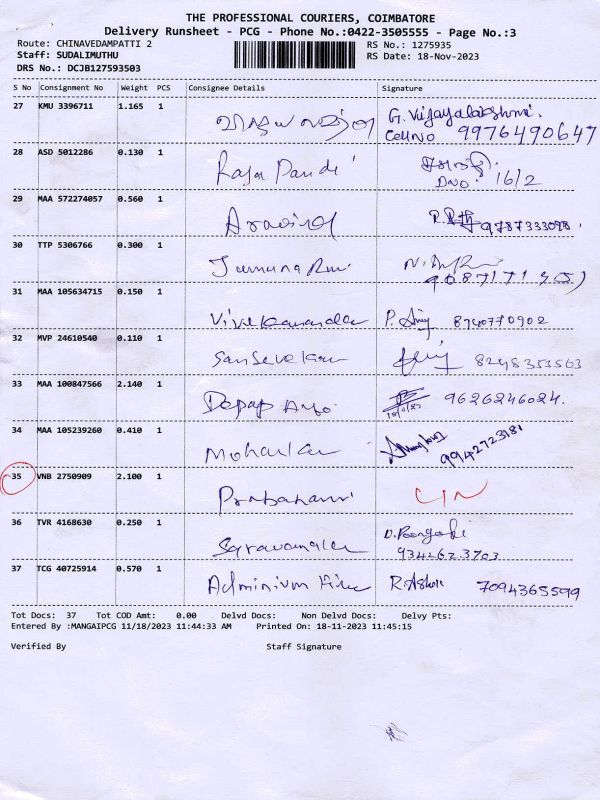 THE PROFESSIONAL COURIERS, COIMBATORE
Delivery Runsheet - PCG - Phone No.:0422-3505555 - Page No.:3
Route: CHINAVEDAMPATTI 2 RS No.: 1275935
Staff: SUDALIMUTHU RS Date: 18-Nov-2023
DRS No.: DCJB127593503
S No Consignment No Weight PCS Consignee Details Signature
27 KMU 3396711 1.165 1 G. Vijayalakshmi.
Cell No 9976490647
28 ASD 5012286 0.130 1 Raja Pandi
DNO: 16/2
29 MAA 572274057 0.560 1 Aravind 9787333098.
30 TTP 5306766 0.300 1 Jamuna Rani
31 MAA 105634715 0.150 1 Vivekanandan 8740770902
32 MVP 24610540 0.110 1 8248353563
33 MAA 100847566 2.140 1 9626246024.
34 MAA 105239260 0.410 1 Mohan 9942723181
35 VNB 2750909 2.100 1
36 TVR 4168630 0.250 1 Saravanan
9342623703
37 TCG 40725914 0.570 1 R. Ashok 7094365599
Tot Docs: 37 Tot COD Amt: 0.00 Delvd Docs: Non Delvd Docs: Delvy Pts:
Entered By :MANGAIPCG 11/18/2023 11:44:33 AM Printed On: 18-11-2023 11:45:15
Verified By Staff Signature